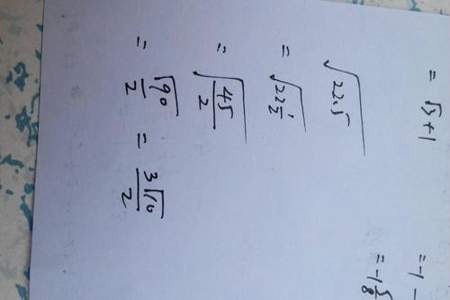 = √3+1
√22.5
= √22 1/2
= √45/2
= √90/2 = 3√10/2
= -1
= -1 5/8